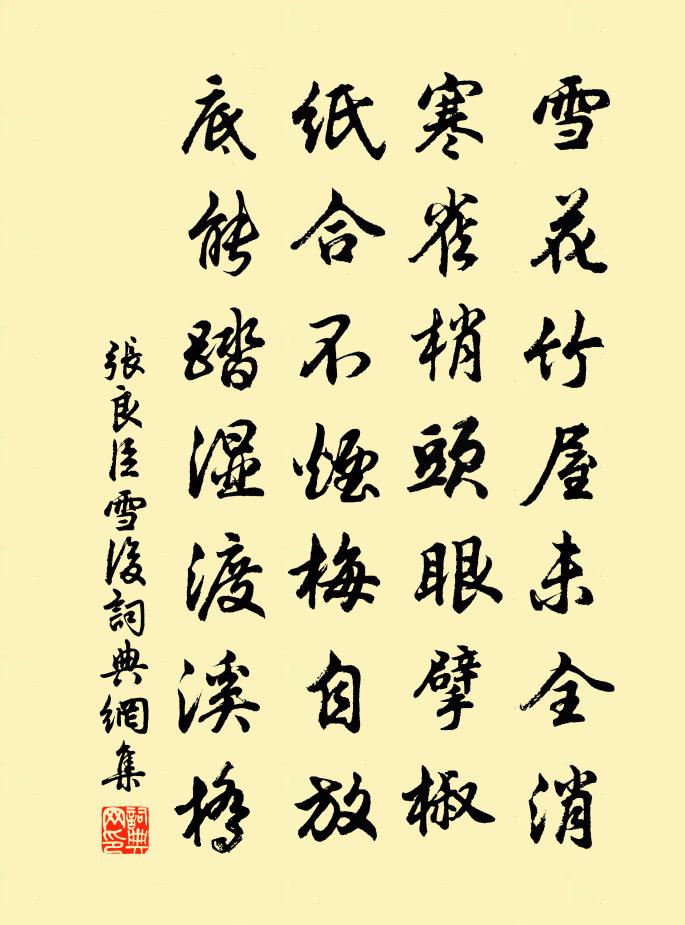 雪花竹屋未全消
寒雀梢頭眼擘椒
紙合不煙梅自放
底能踏湿渡溪橋
張良臣雪後詞典網集
詞典網印